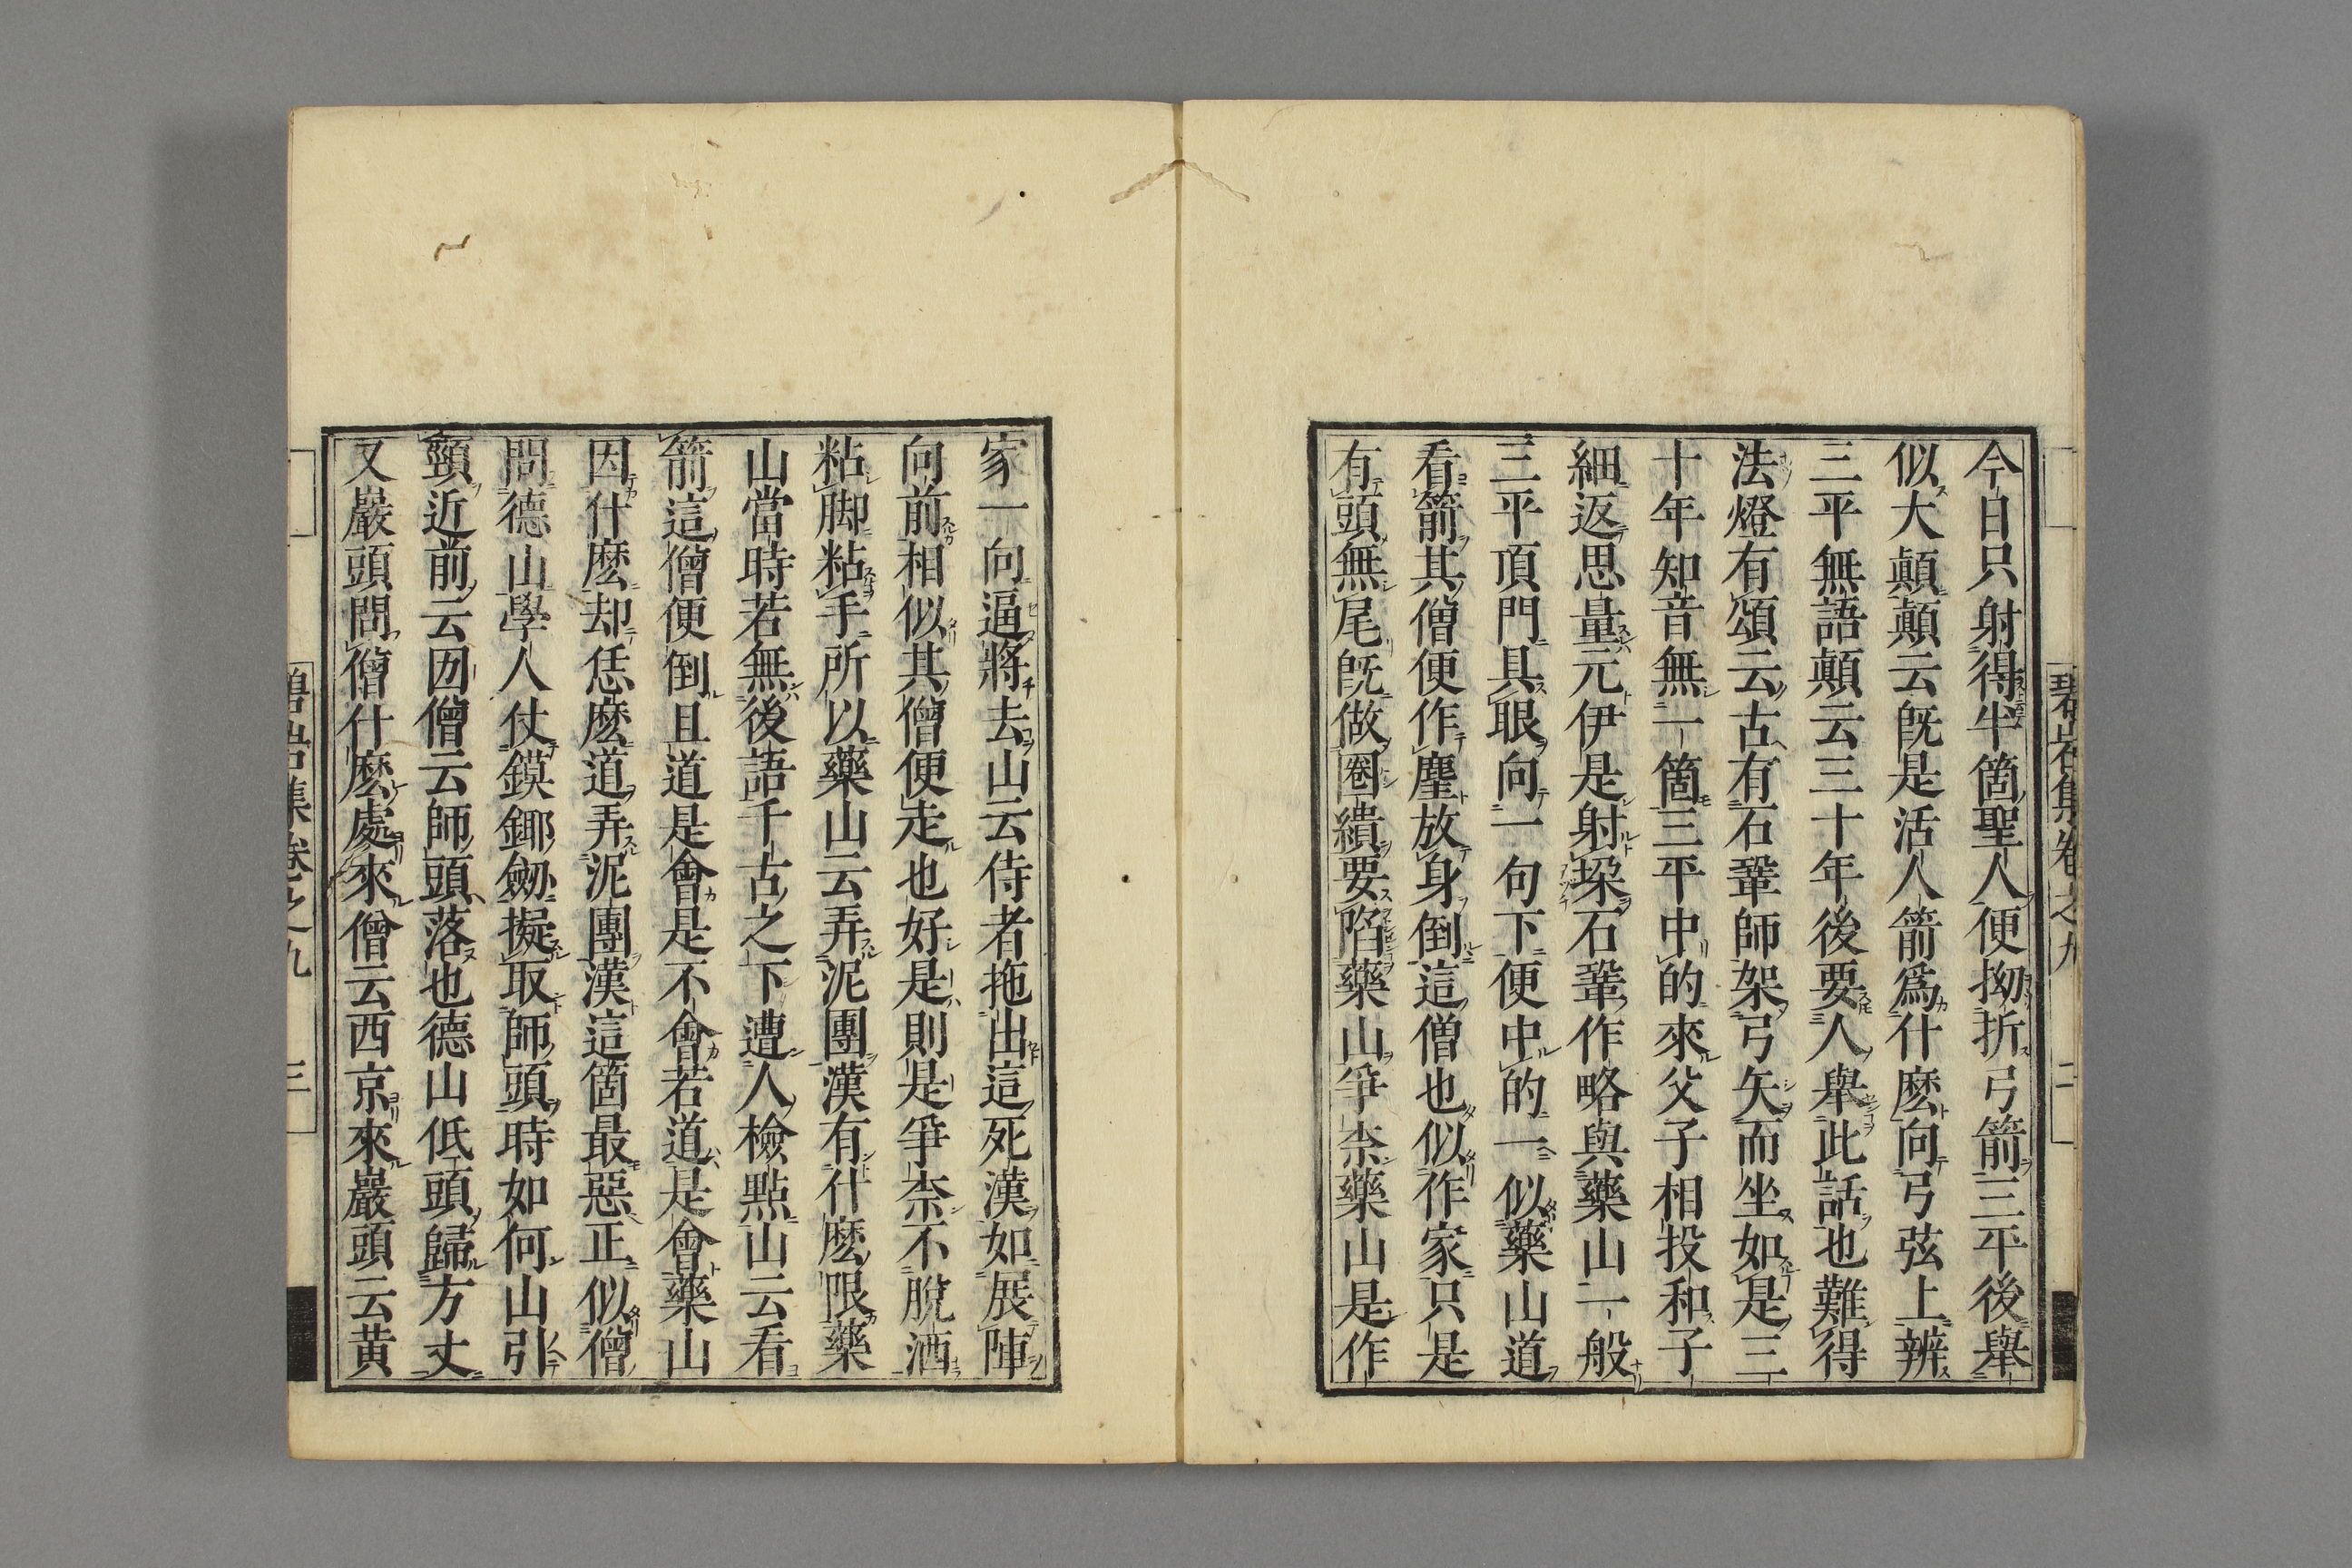 今日只射得半箇聖人便拗折弓箭三平後舉
似大顛顛云旣是活人箭爲什麽向弓弦上辨
三平無語顛云三十年後要人舉此話也難得
法燈有頌云古有石鞏師架弓矢而坐如是三
十年知音無一箇三平中的來父子相投和子
細返思量元伊是射垜石鞏作略與藥山一般
三平頂門具眼向一句下便中的一似藥山道
看箭其僧便作麈放身倒這僧也似作家只是
有頭無尾旣做圈繢要陷藥山爭柰藥山是作
碧岩集卷之九 二
家一向逼將去山云侍者拖出這死漢如展陣
向前相似其僧便走也好是則是爭柰不脫洒
粘脚粘手所以藥山云弄泥團漢有什麽限藥
山當時若無後語千古之下遭人檢點山云看
箭這僧便倒且道是會是不會若道是會藥山
因什麽却恁麽道弄泥團漢這箇最惡正似僧
問德山學人仗鏌鋣劒擬取師頭時如何山引
頸近前云㘞僧云師頭落也德山低頭歸方丈
又巖頭問僧什麽處來僧云西京來巖頭云黄
碧岩集卷之九 三